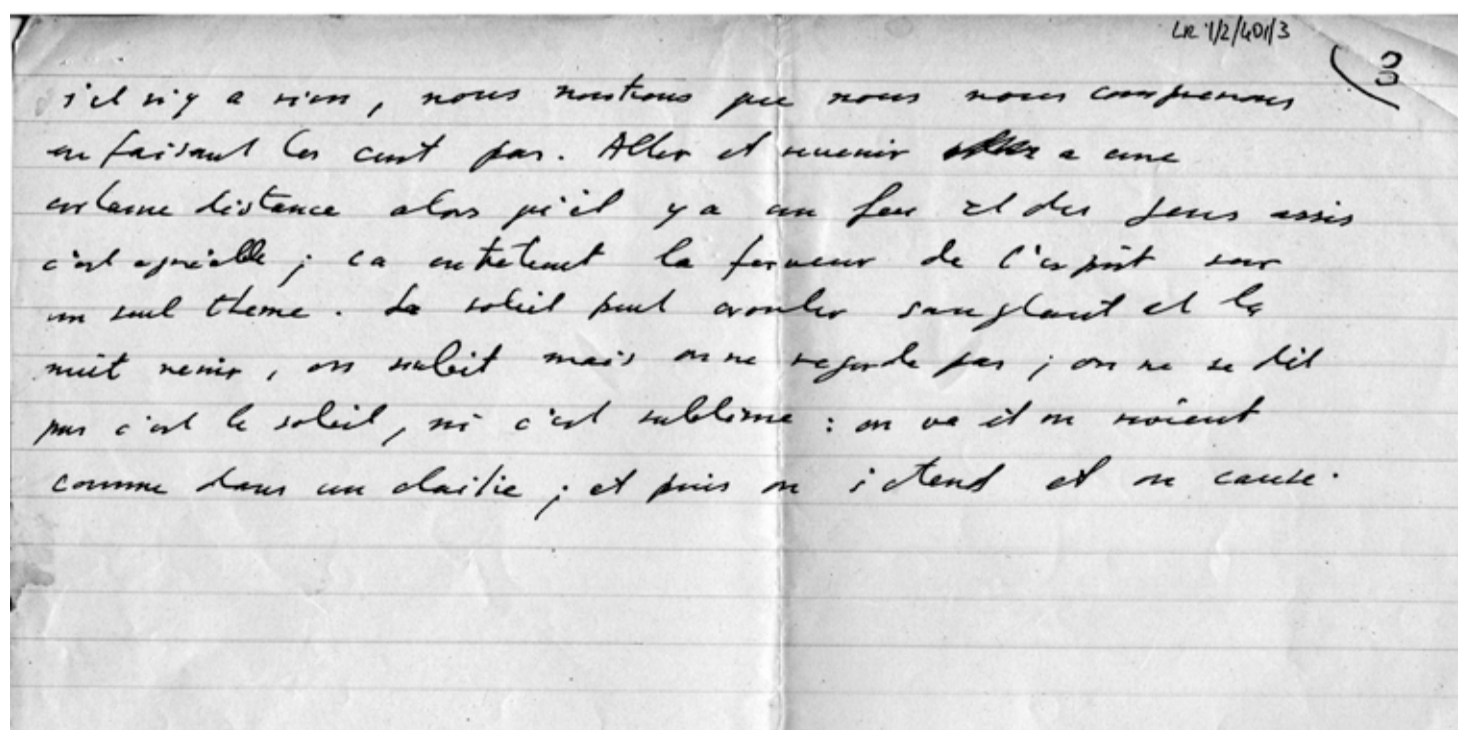 LR 1/2/401/3
3
s'il n'y a rien, nous montrons que nous nous comprenons
en faisant les cent pas. Aller et revenir a une
certaine distance alors qu'il y a un feu et des gens assis
c'est agréable ; ca entretient la ferveur de l'esprit sur
un seul theme. Le soleil peut crouler sanglant et la
nuit venir, on subit mais on ne regarde pas ; on ne se dit
pas c'est le soleil, ni c'est sublime : on va et on revient
comme dans un ; et puis on s'etend et on cause.